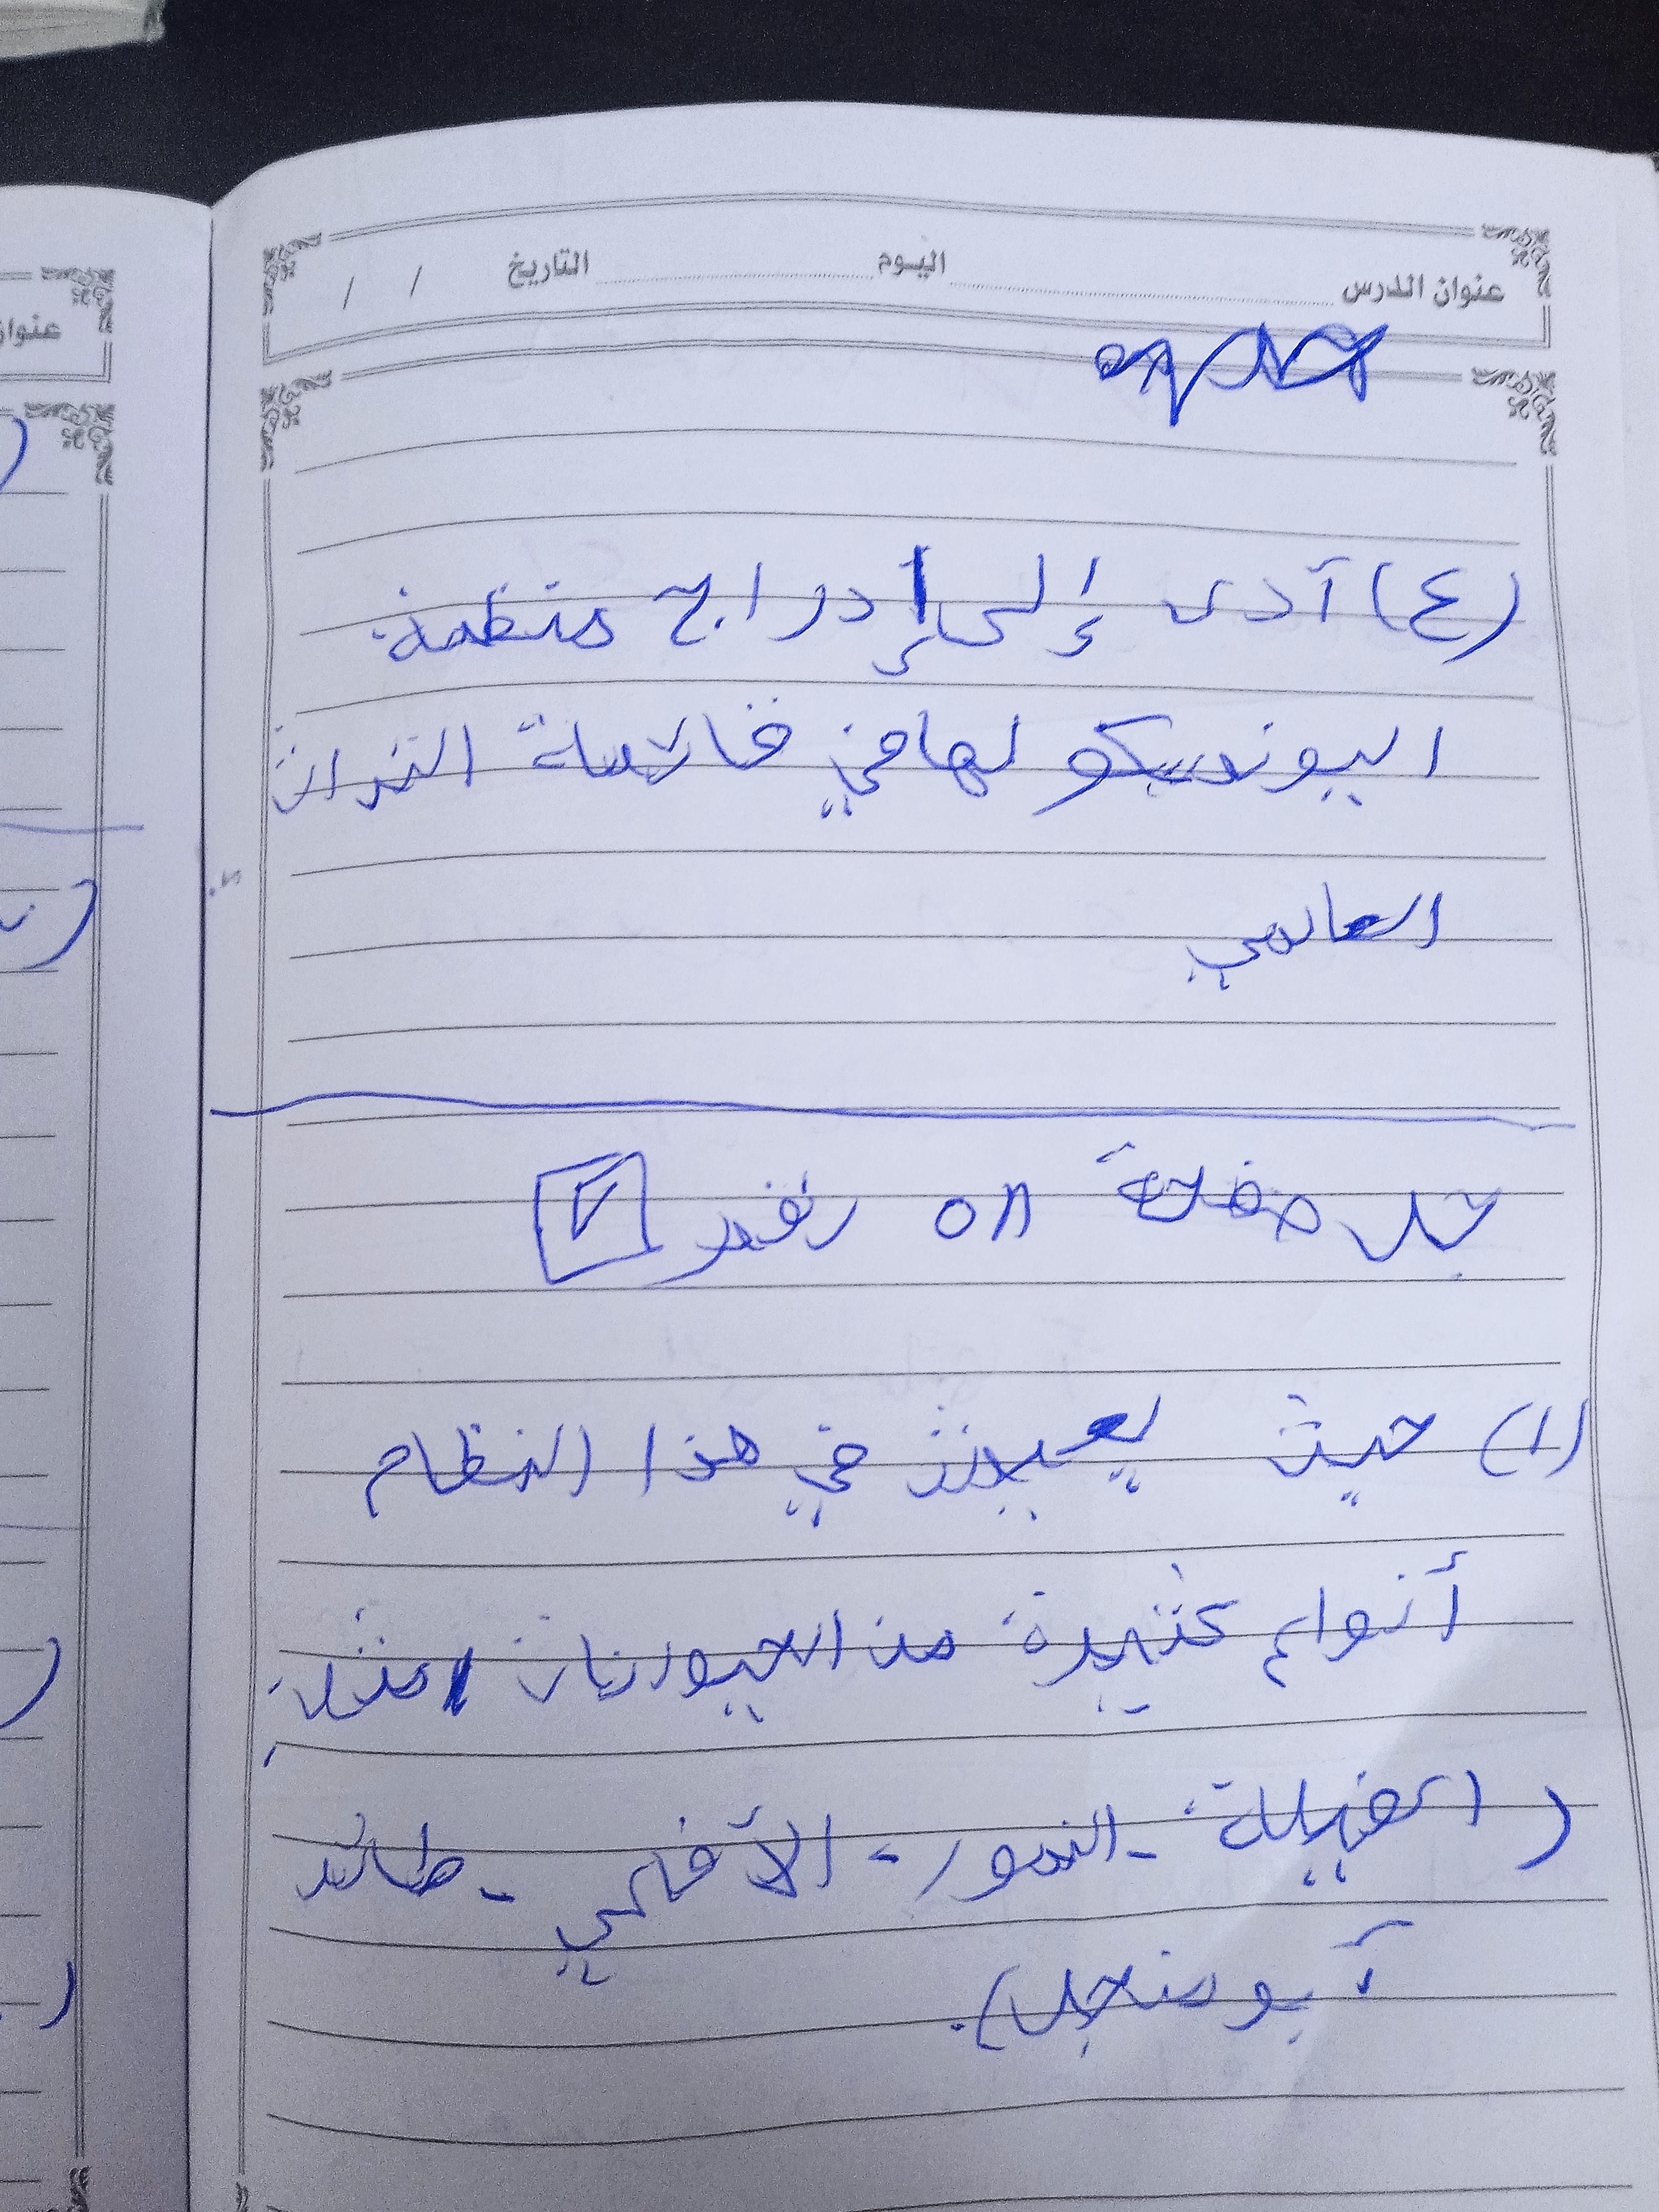 عنوان الدرس اليوم التاريخ / /
(٤) آدى إلى إدراج منظمة
اليونسكو لها في قائمة التراث
العالمي
حل صفحة ٥٨ رقم ٢
(١) حيث يعيش في هذا النظام
أنواع كثيرة من الحيوانات مثل:
(الفيلة - النمور - الآفاعي - طائر
آبو منجل).
عنوان